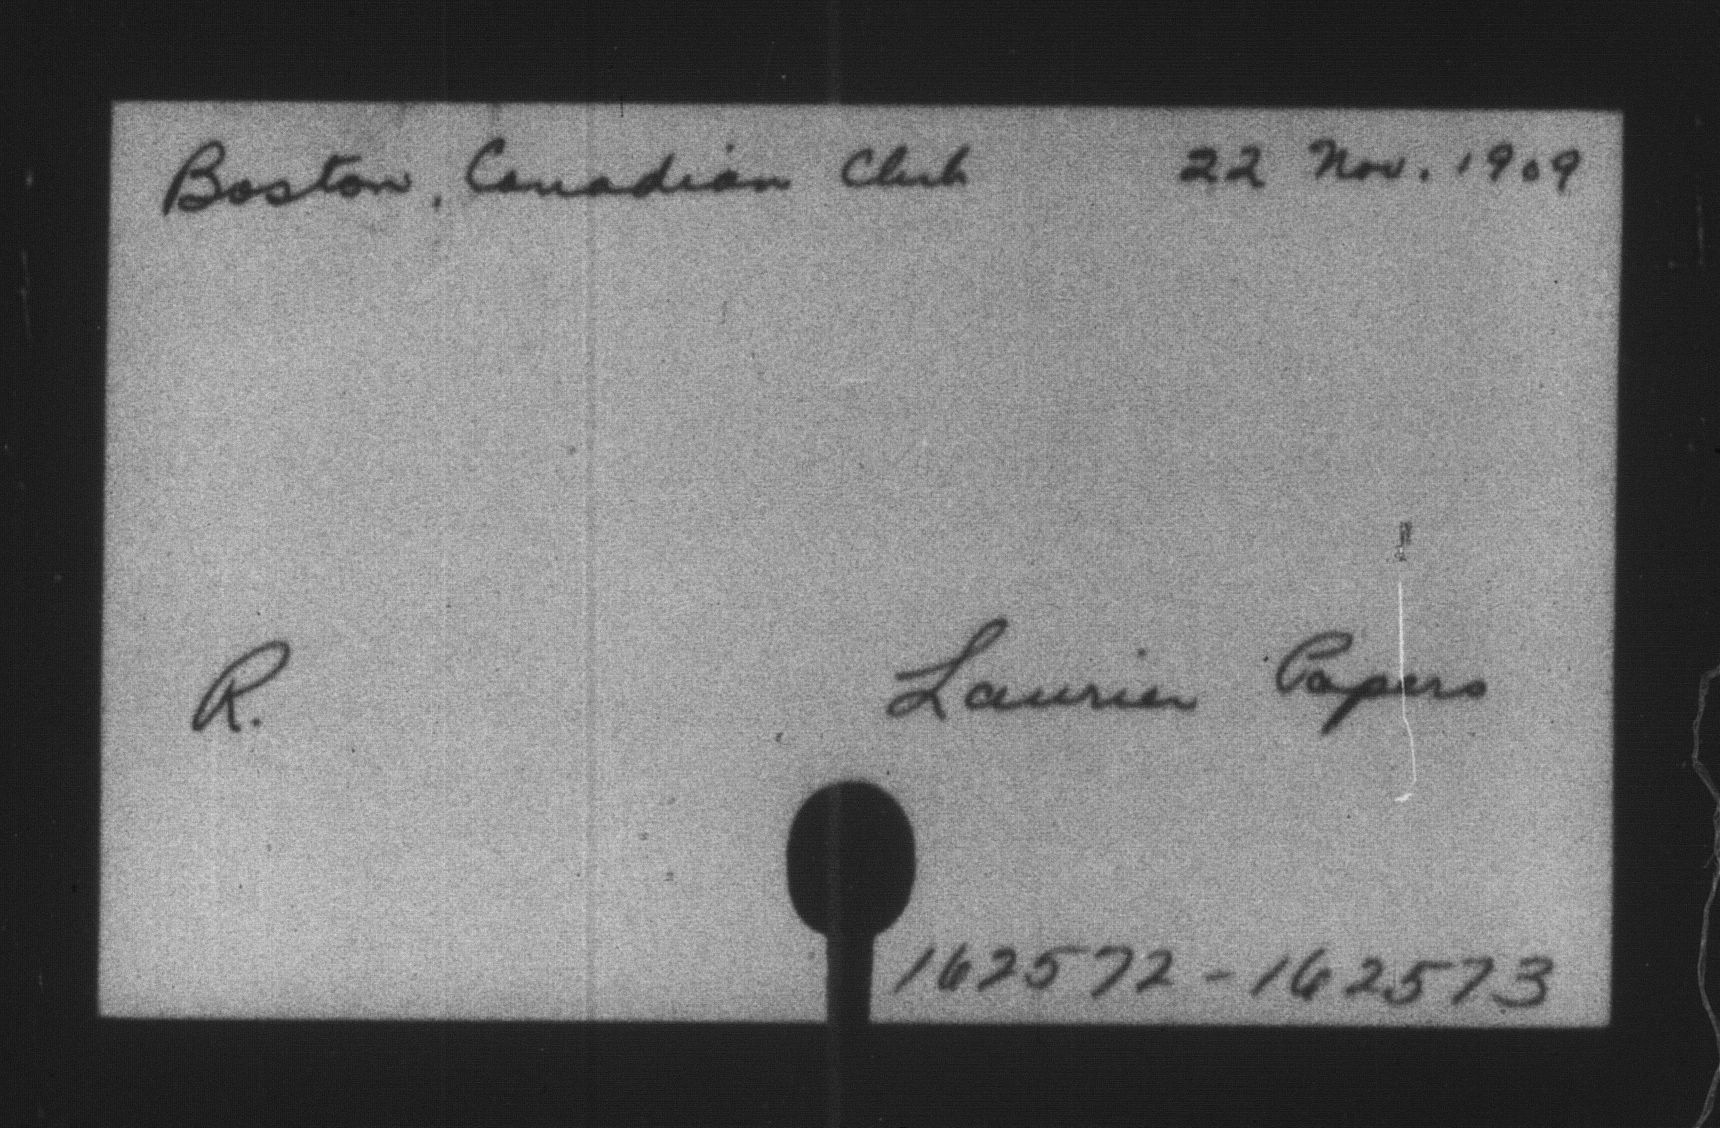 Boston, Canadian Club 22 Nov. 1909
R. Laurier Papers
162572-162573